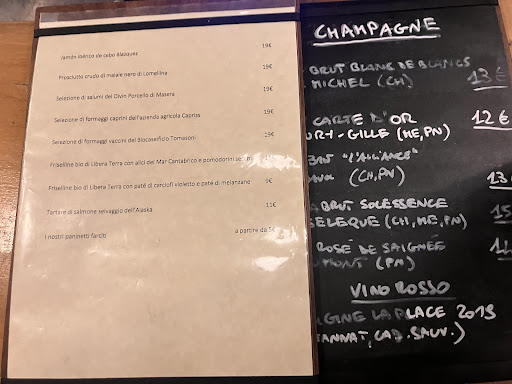 Jamón ibérico de cebo Blázquez
19€
Prosciutto crudo di maiale nero di Lomellina
19€
Selezione di salumi del Divin Porcello di Masera
19€
Selezione di formaggi caprini dell'azienda agricola Capriss
19€
Selezione di formaggi vaccini del Biocaseificio Tomasoni
19€
Friselline bio di Libera Terra con alici del Mar Cantabrico e pomodorini
Friselline bio di Libera Terra con paté di carciofi violetto e paté di melanzane
9€
Tartare di salmone selvaggio dell'Alaska
11€
I nostri paninetti farciti
a partire da 5€
CHAMPAGNE
BRUT BLANC DE BLANCS
MICHEL (CH)
13€
CARTE D'OR
12€
GILLE (ME,PN)
"L'ALLIANCE"
(CH,PN)
13
BRUT SOLESSENCE
15
(CH,ME,PN)
ROSÉ DE SAIGNÉE
(PN)
VINO ROSSO
LAPLACE 2019
TANNAT, CAB. SAUV.)